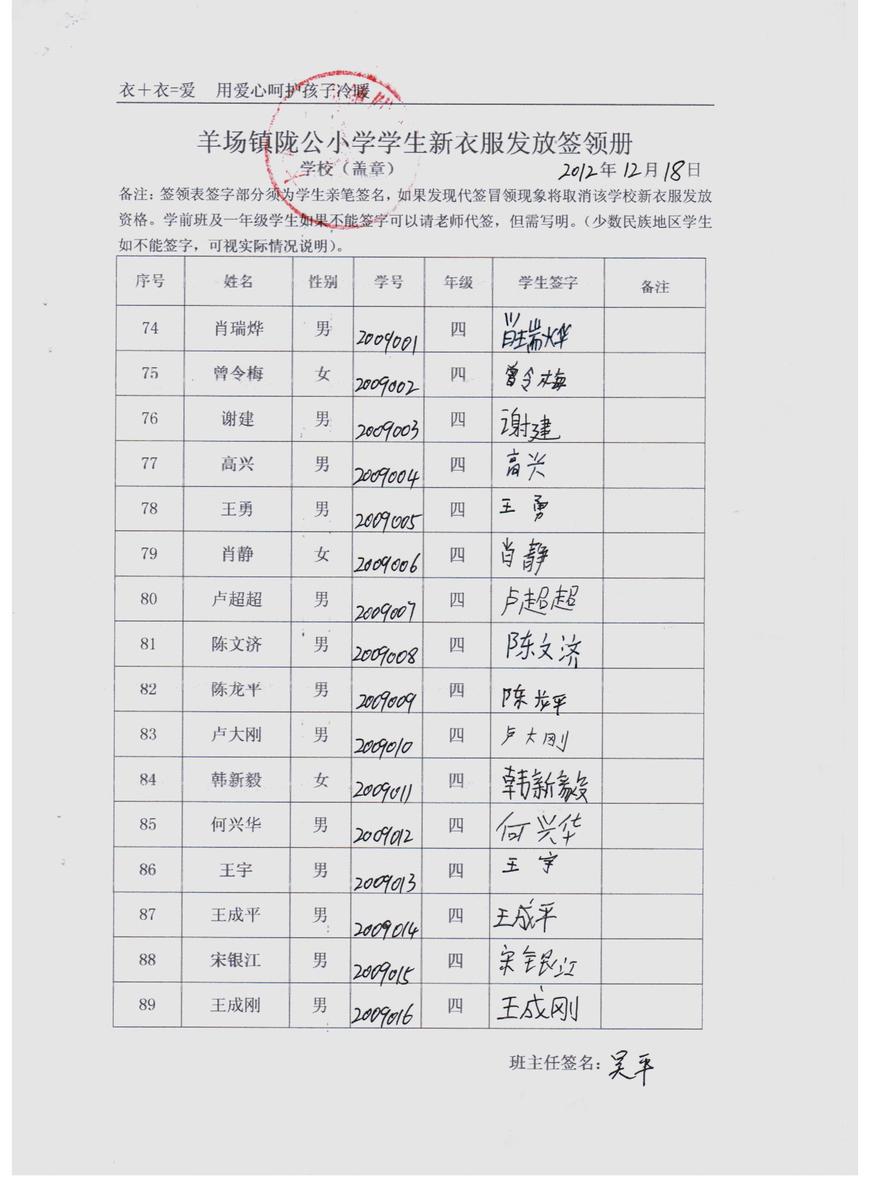 衣+衣=爱 用爱心呵护孩子冷暖
羊场镇陇公小学学生新衣服发放签领册
学校（盖章） 2012年12月18日
备注：签领表签字部分须为学生亲笔签名，如果发现代签冒领现象将取消该学校新衣服发放
资格。学前班及一年级学生如果不能签字可以请老师代签，但需写明。（少数民族地区学生
如不能签字，可视实际情况说明）。
序号 姓名 性别 学号 年级 学生签字 备注
74 肖瑞烨 男 2009001 四 肖瑞烨
75 曾令梅 女 2009002 四 曾令梅
76 谢建 男 2009003 四 谢建
77 高兴 男 2009004 四 高兴
78 王勇 男 2009005 四 王勇
79 肖静 女 2009006 四 肖静
80 卢超超 男 2009007 四 卢超超
81 陈文济 男 2009008 四 陈文济
82 陈龙平 男 2009009 四 陈龙平
83 卢大刚 男 2009010 四 卢大刚
84 韩新毅 女 2009011 四 韩新毅
85 何兴华 男 2009012 四 何兴华
86 王宇 男 2009013 四 王宇
87 王成平 男 2009014 四 王成平
88 宋银江 男 2009015 四 宋银江
89 王成刚 男 2009016 四 王成刚
班主任签名：吴平